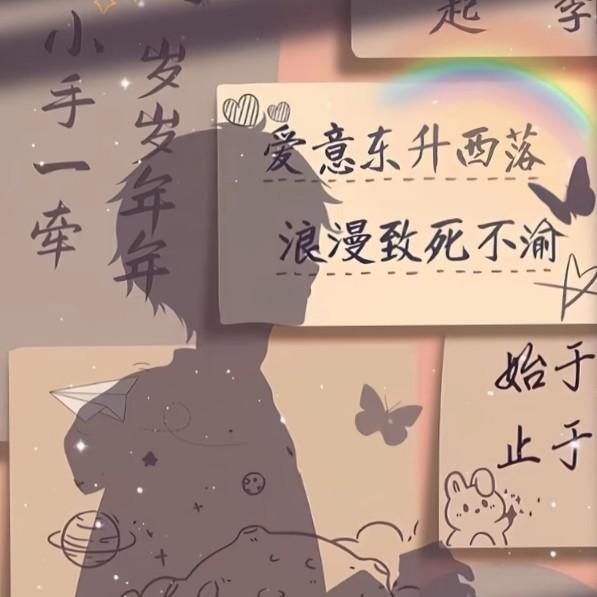 小手一牵
岁岁年年
爱意东升西落
浪漫致死不渝
始于
止于
起